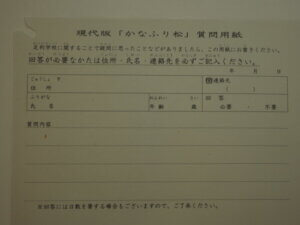 現代版「かなふり松」質問用紙
足利学校に関することで疑問に思ったことなどがありましたら、この用紙にお書きください。
回答が必要なかたは住所・氏名・連絡先を必ずご記入ください。
年 月 日
じゅうしょ
住所
連絡先
( )
ふりがな
氏名
ねんれい さい
年齢 歳
回答
必要・不要
質問内容
※回答には日数を要する場合もございますので、ご了承ください。